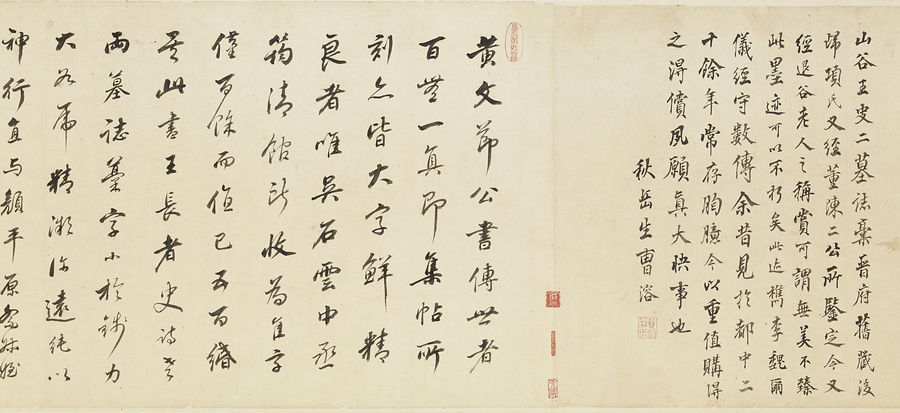 山谷王史二墓誌藁晉府舊藏後
歸項氏又經董陳二公所鑒定今又
經退谷老人之稱賞可謂無美不臻
此墨迹可以不朽矣此迹檇李魏爾
儀經守數傳余昔見於都中二
十餘年常存胸臆今以重值購得
之得償夙願真大快事也
秋岳生曹溶
黃文節公書傳世者
百無一真即集帖所
刻亦皆大字鮮精
良者唯吳石雲中丞
筠清館所收為隹字
僅百餘而值已五百緡
若此書王長者史詩老
兩墓誌藁字小於錢力
大於
神行直與顏平原